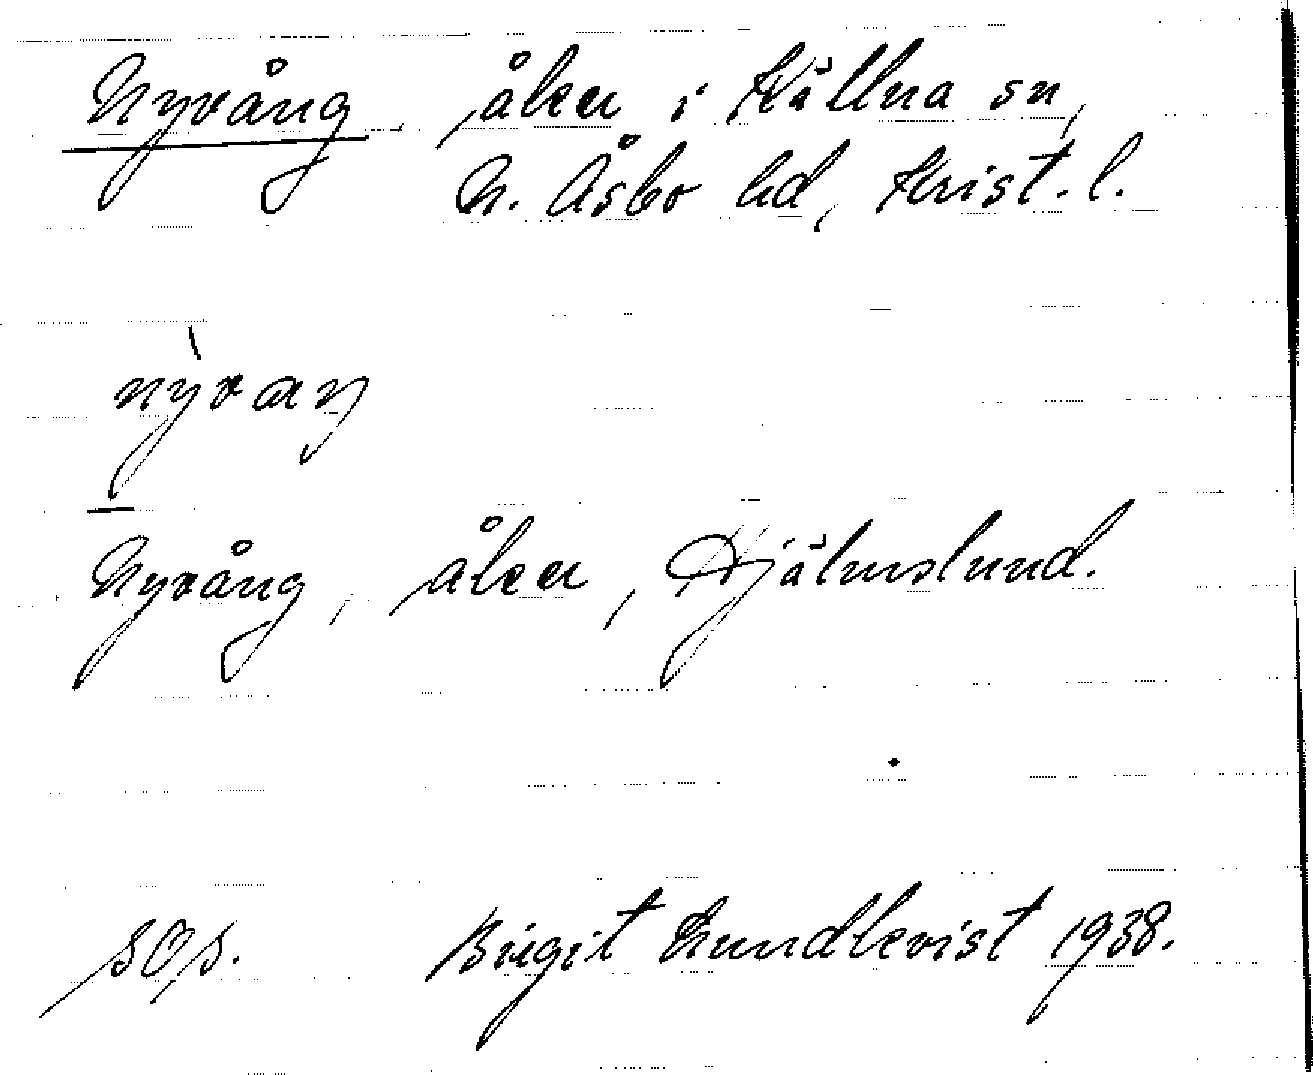 Nyvång, åker i Källna sn,
N. Åsbo hd, Krist. l.
nỳvaŋ
Nyvång, åker, Hjälmslund.
sOp. Birgit Lundkvist 1938.